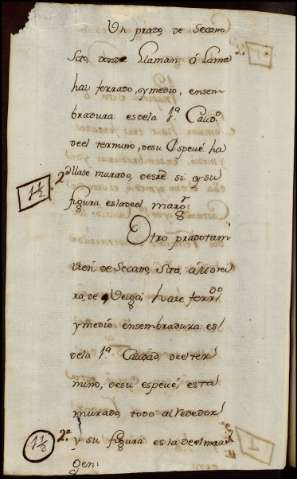 Un prado de Secano
Sito donde llaman, ô Lame
haz ferrado, y medio, ensem
bradura es dela 1ª Calidᵈ
deel termino, desu Especie, ha
llase murado, desre si y su
figura es la del margⁿ
1½
2ª
Otro prado tam
vien de Secano Sito
ra, de Veiga, haze ferrᵈᵒ
y medio ensembradura es
dela 1ª Calidad, deel ter
mino, desu especie, esta
murado todo alrededor
2ª y su figura es la del mar
gen:
1½